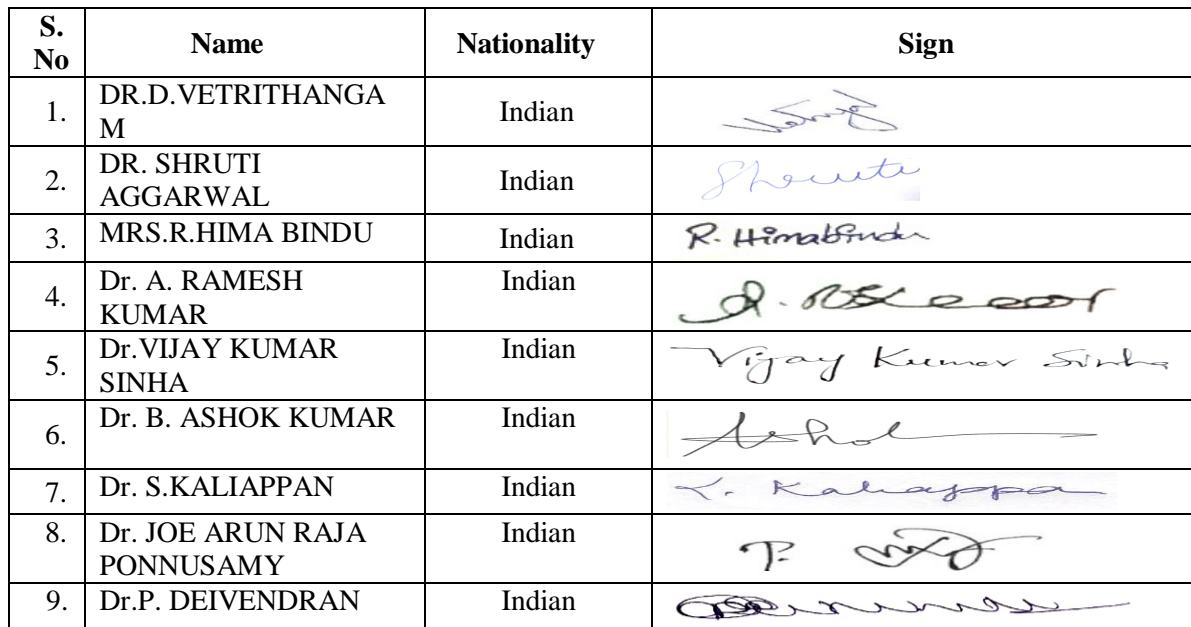 S. No Name Nationality Sign
1. DR.D.VETRITHANGA Indian
M
2. DR. SHRUTI Indian Shruti
AGGARWAL
3. MRS.R.HIMA BINDU Indian R. Himabindu
4. Dr. A. RAMESH Indian
KUMAR
5. Dr.VIJAY KUMAR Indian Vijay Kumar Sinha
SINHA
6. Dr. B. ASHOK KUMAR Indian Ashok
7. Dr. S.KALIAPPAN Indian S. Kaliappan
8. Dr. JOE ARUN RAJA Indian
PONNUSAMY
9. Dr.P. DEIVENDRAN Indian